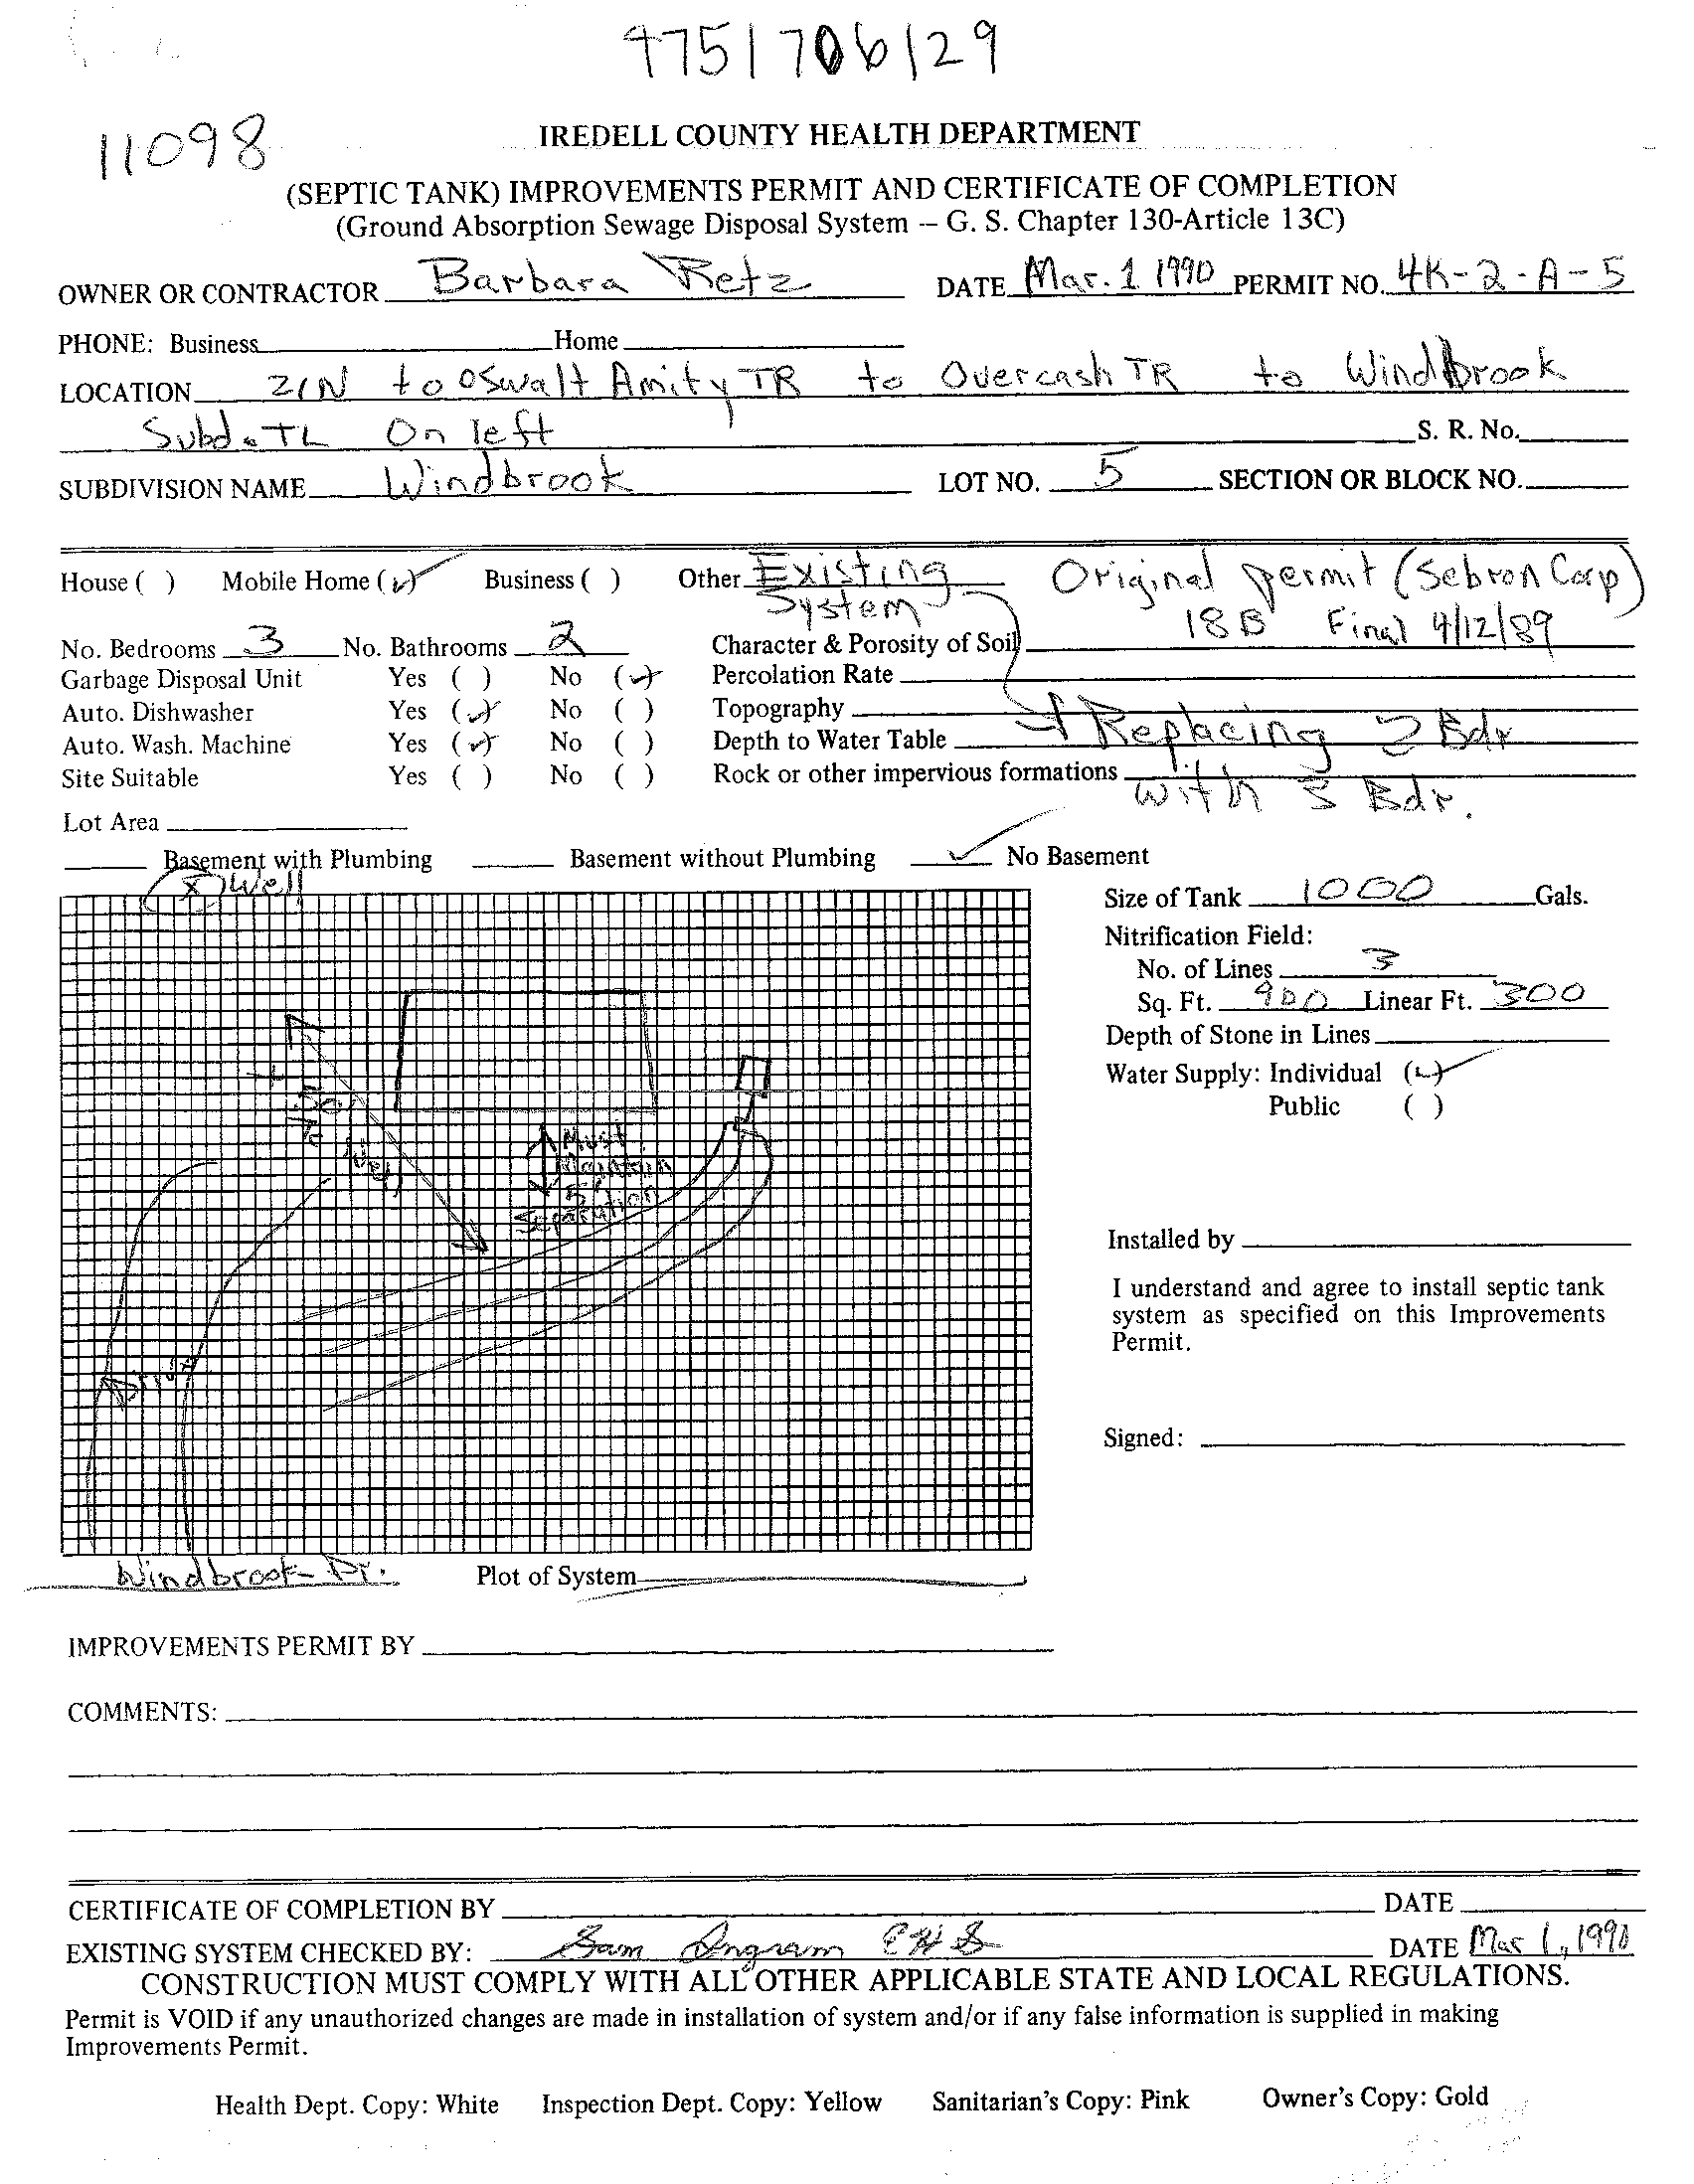 4751706129
11098
IREDELL COUNTY HEALTH DEPARTMENT
(SEPTIC TANK) IMPROVEMENTS PERMIT AND CERTIFICATE OF COMPLETION
(Ground Absorption Sewage Disposal System -- G. S. Chapter 130-Article 13C)
OWNER OR CONTRACTOR Barbara Retz DATE Mar. 1 1990 PERMIT NO. 4K-2-A-5
PHONE: Business Home
LOCATION 21N to Oswalt Amity TR to Overcash TR to Windbrook
Subd. TL On left S. R. No.
SUBDIVISION NAME Windbrook LOT NO. 5 SECTION OR BLOCK NO.
House ( ) Mobile Home (✓) Business ( ) Other Existing System Original permit (Sebron Corp)
18B Final 4/12/89
No. Bedrooms 3 No. Bathrooms 2 Character & Porosity of Soil
Garbage Disposal Unit Yes ( ) No (✓) Percolation Rate
Auto. Dishwasher Yes (✓) No ( ) Topography
Auto. Wash. Machine Yes (✓) No ( ) Depth to Water Table Replacing 2 Bdr
Site Suitable Yes ( ) No ( ) Rock or other impervious formations with 3 Bdr.
Lot Area
Basement with Plumbing Basement without Plumbing ✓ No Basement
(X) Well
Size of Tank 1000 Gals.
Nitrification Field:
No. of Lines 3
Sq. Ft. 900 Linear Ft. 300
Depth of Stone in Lines
Water Supply: Individual (✓)
Public ( )
Must
Maintain
5'
Separation
Drive
Installed by
I understand and agree to install septic tank
system as specified on this Improvements
Permit.
Signed:
Windbrook Dr. Plot of System
IMPROVEMENTS PERMIT BY
COMMENTS:
CERTIFICATE OF COMPLETION BY DATE
EXISTING SYSTEM CHECKED BY: Sam Ingram EHS DATE Mar 1, 1990
CONSTRUCTION MUST COMPLY WITH ALL OTHER APPLICABLE STATE AND LOCAL REGULATIONS.
Permit is VOID if any unauthorized changes are made in installation of system and/or if any false information is supplied in making
Improvements Permit.
Health Dept. Copy: White Inspection Dept. Copy: Yellow Sanitarian's Copy: Pink Owner's Copy: Gold